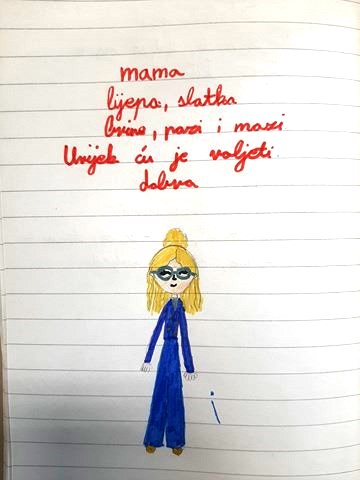 mama
lijepa, slatka
brine, pazi i mazi
Uvijek ću je voljeti
dobra
i